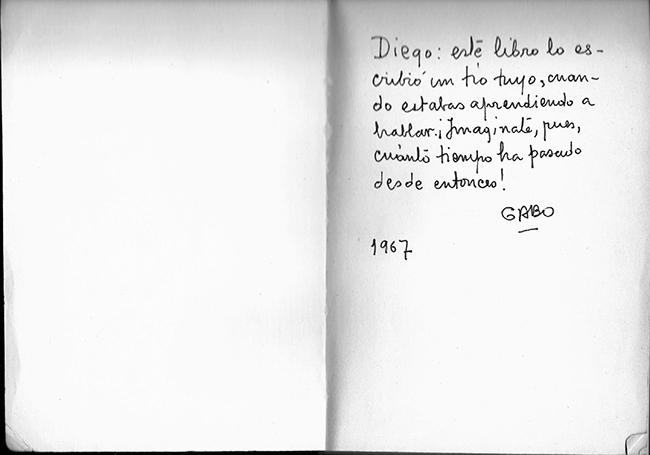 Diego: este libro lo es-
cribió un tío tuyo, cuan-
do estabas aprendiendo a
hablar. ¡Imagínate, pues,
cuánto tiempo ha pasado
desde entonces!
GABO
1967